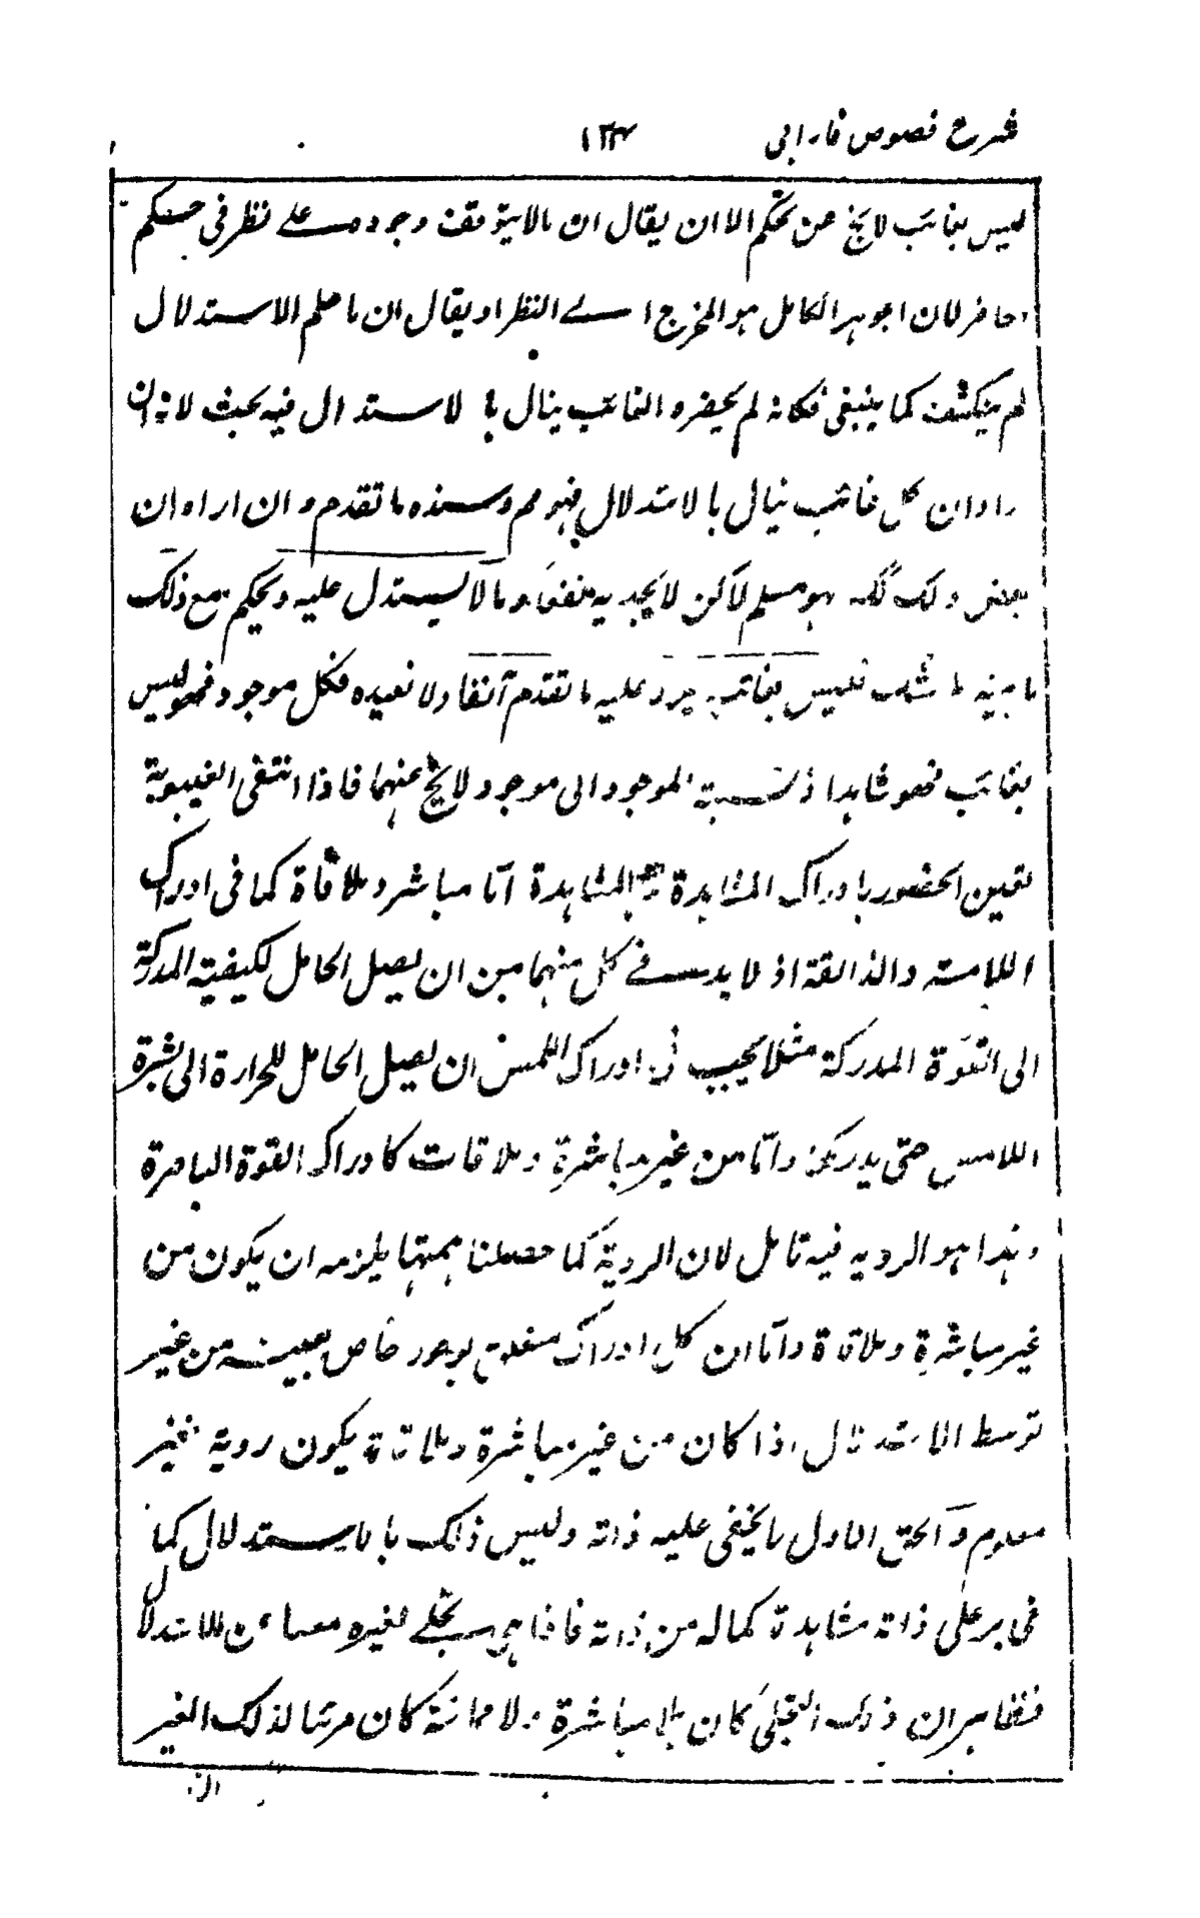 شرح فصوص فارابی ١٣٤
ليس بغائب لايخ عن تحكم الا ان يقال ان مالايتوقف وجوده على نظر فى حكم
حاضر لان الجوهر الكامل هو المخرج الى النظر او يقال ان ما علم الاستدلال
لم ينكشف كما ينبغى فكانه لم يحضره الغائب ينال بالاستدلال فيه بحث لانه ان
اراد ان كل غائب ينال بالاستدلال فهو مم وسنده ما تقدم وان اراد ان
بعض ذلك كله هو مسلم لاكن لايجديه منفعة وما لا يستدل عليه ويحكم مع ذلك
مابنيه ما شك فليس بغائب يرد عليه ما تقدم آنفا ولا نعيده فكل موجود فهو ليس
بغائب فهو شاهد اذ نسبة الموجود الى موجود لايخ عنهما فاذا انتفى الغيبوبة
تعين الحضور باوراك المشاہدة المشاہدة اما مباشر وملاقاة كما فى ادراك
اللامسته والذائقة اذ لا بد فى كل منهما من ان يصل الحامل لكيفية المدركة
الى القوة المدركة مثلا يجب فى ادراك اللمس ان يصل الحامل للحرارة الى بشرة
اللامس حتى يدركه واما من غير مباشرة وملاقات كادراك القوة الباصرة
وہذا ہو الرويه فيه تامل لان الروية كما حصلنا مہيتہا يلزمه ان يكون من
غير مباشرة وملاقاة واما ان كل ادراك متعلق بوجود خاص بعينه من غير
توسط الاستدلال اذا كان من غير مباشرة وملاقاة يكون روية بغير
معدوم والحق الاول لايخفى عليه ذاته وليس ذلك بالاستدلال كما
فى برعلى ذاته مشاہدة كماله من ذاته فاذا ہى تجلے لغيره مصاعن للاستدلال
فظاہر ان ذلك التجلى كان بلا مباشرة ولا مماسة كان مرئيا لذلك الغير